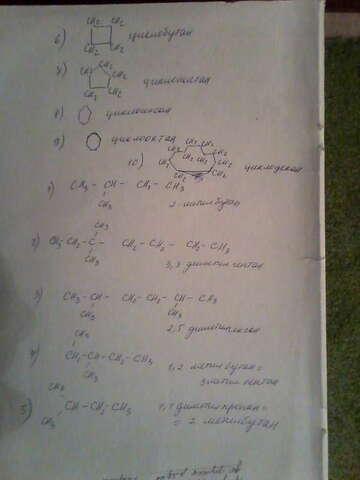 6) CH2 CH2 CH2 CH2 циклобутан
7) CH2 CH2 CH2 CH2 CH2 циклопентан
8) циклогексан
9) циклооктан
10) CH2 CH2 CH2 CH2 CH2 CH2 CH2 CH2 CH2 CH2 циклодекан
1) CH3 - CH - CH2 - CH3
CH3 2 метилбутан
CH3
2) CH3-CH2-C - CH2-CH2 - CH2-CH3
CH3 3,3 диметил гептан
3) CH3-CH - CH2-CH2-CH-CH3
CH3 CH3 2,5 диметилгексан
CH3
4) CH2-CH-CH2-CH3 1,2 метил бутан =
CH3 3 метил пентан
CH3
5) CH-CH2-CH3 1,1 диметил пропан =
CH3 = 2 метилбутан